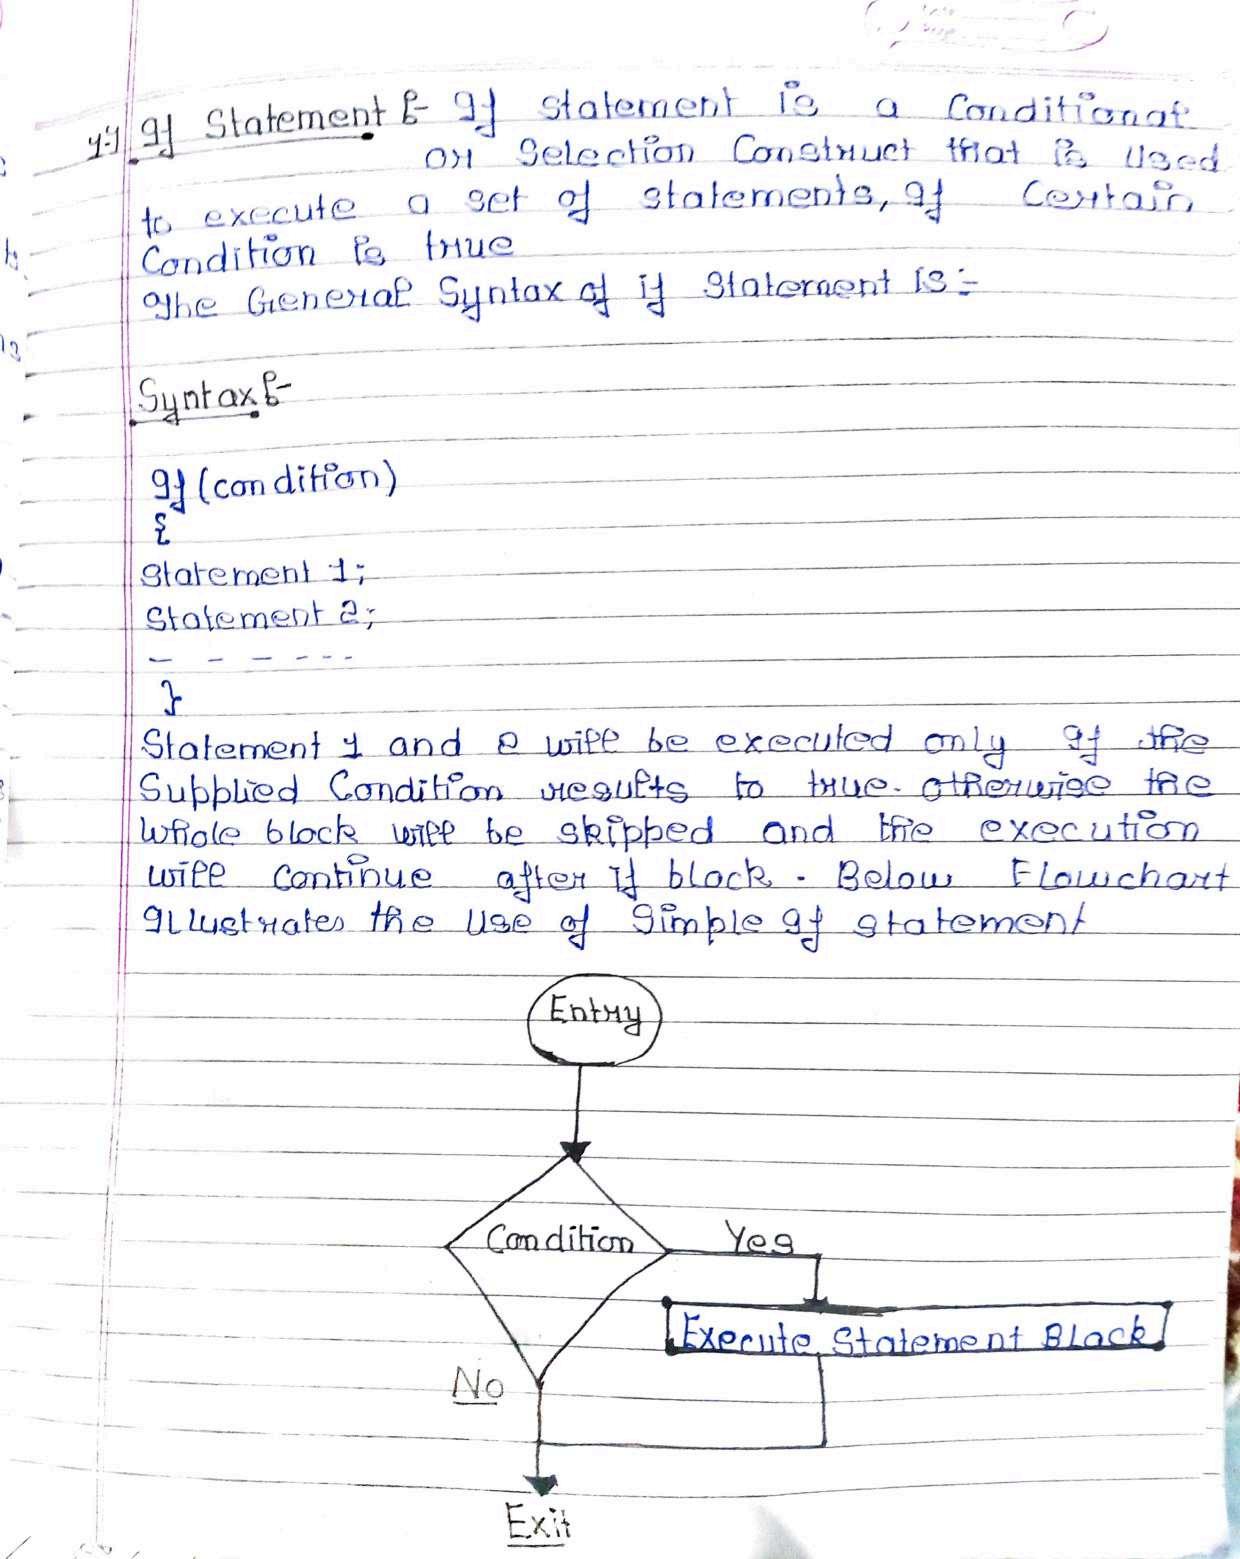 If Statement :- If statement is a Conditional
or Selection Construct that is used
to execute a set of statements, If Certain
Condition is true
The General Syntax of if Statement is :-
Syntax :-
If (condition)
{
Statement 1;
Statement 2;
- - - - - -
}
Statement 1 and 2 will be executed only If the
Supplied Condition results to true. otherwise the
whole block will be skipped and the execution
will continue after if block. Below Flowchart
Illustrates the use of Simple If statement
Entry
Condition
Yes
Execute Statement Black
No
Exit